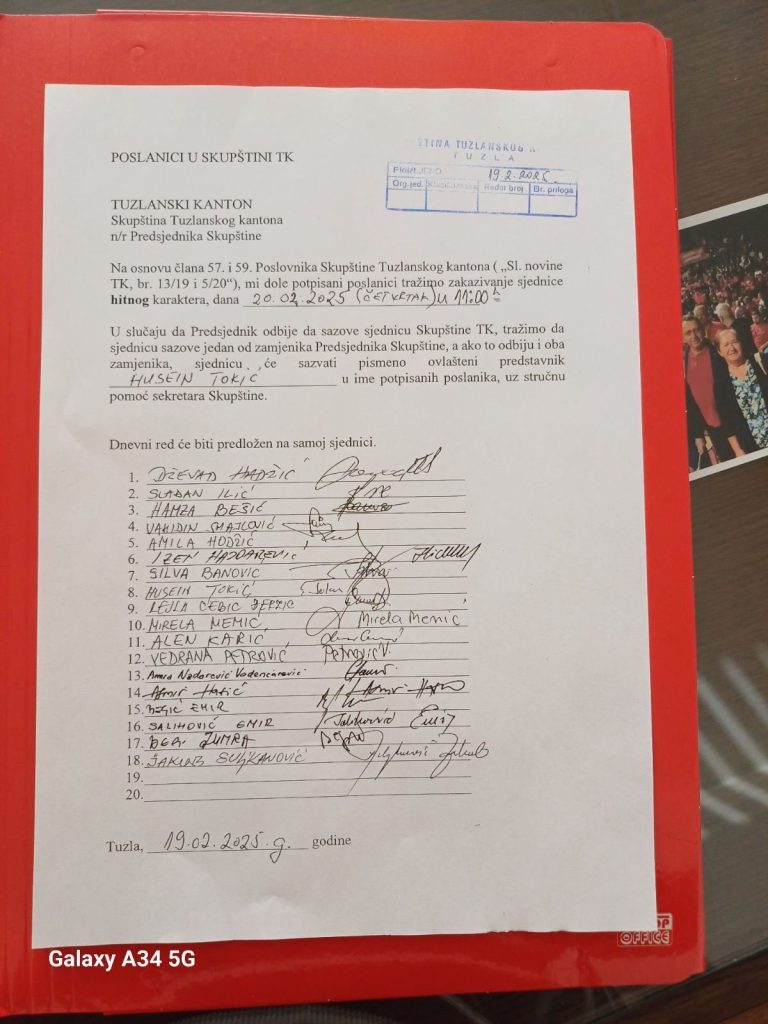 POSLANICI U SKUPŠTINI TK
ŠTINA TUZLANSKOG K
TUZLA
PRIMLJENO 19 2. 2025.
Org.jed. Redni broj Br. priloga
TUZLANSKI KANTON
Skupština Tuzlanskog kantona
n/r Predsjednika Skupštine
Na osnovu člana 57. i 59. Poslovnika Skupštine Tuzlanskog kantona ( „Sl. novine
TK, br. 13/19 i 5/20“), mi dole potpisani poslanici tražimo zakazivanje sjednice
hitnog karaktera, dana 20.02.2025 (ČETVRTAK) u 11:00 h
U slučaju da Predsjednik odbije da sazove sjednicu Skupštine TK, tražimo da
sjednicu sazove jedan od zamjenika Predsjednika Skupštine, a ako to odbiju i oba
zamjenika, sjednicu će sazvati pismeno ovlašteni predstavnik
HUSEIN TOKIĆ u ime potpisanih poslanika, uz stručnu
pomoć sekretara Skupštine.
Dnevni red će biti predložen na samoj sjednici.
1. DŽEVAD HADŽIĆ
2. SLAĐAN ILIĆ
3. HAMZA BEŠIĆ
4. VAHIDIN SMAJLOVIĆ
5. AMILA HODŽIĆ
6. IZEN HAJDAREVIĆ
7. SILVA BANOVIĆ
8. HUSEIN TOKIĆ
9. LEJLA
10. MIRELA MEMIĆ Mirela Memić
11. ALEN KARIĆ
12. VEDRANA PETROVIĆ Petrović V.
13. Amra Nadarević Vodenčarević
14. Almir Hasić
15. BEGIĆ EMIR
16. SALIHOVIĆ EMIR Salihović Emir
17. ZUMRA
18. JAKUB SULJKANOVIĆ
19.
20.
Tuzla, 19.02.2025.g. godine
OFFICE
Galaxy A34 5G